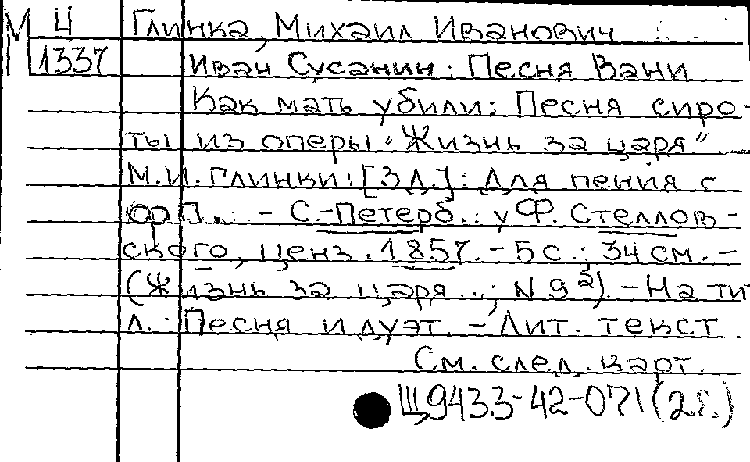 М Ц Глинка, Михаил Иванович
1337 Иван Сусанин: Песня Вани
Как мать убили: Песня сиро-
ты из оперы "Жизнь за царя"
М.И. Глинки: [З д.]: Для пения с
фп. - С.-Петерб.: у Ф. Стеллов-
ского, ценз. 1857. - 5 с.; 34 см. -
(Жизнь за царя..; N 9²). - На ти
л.: Песня и дуэт. - Лит. текст.
См. след. карт.
Щ943.3-42-071(2 г.)